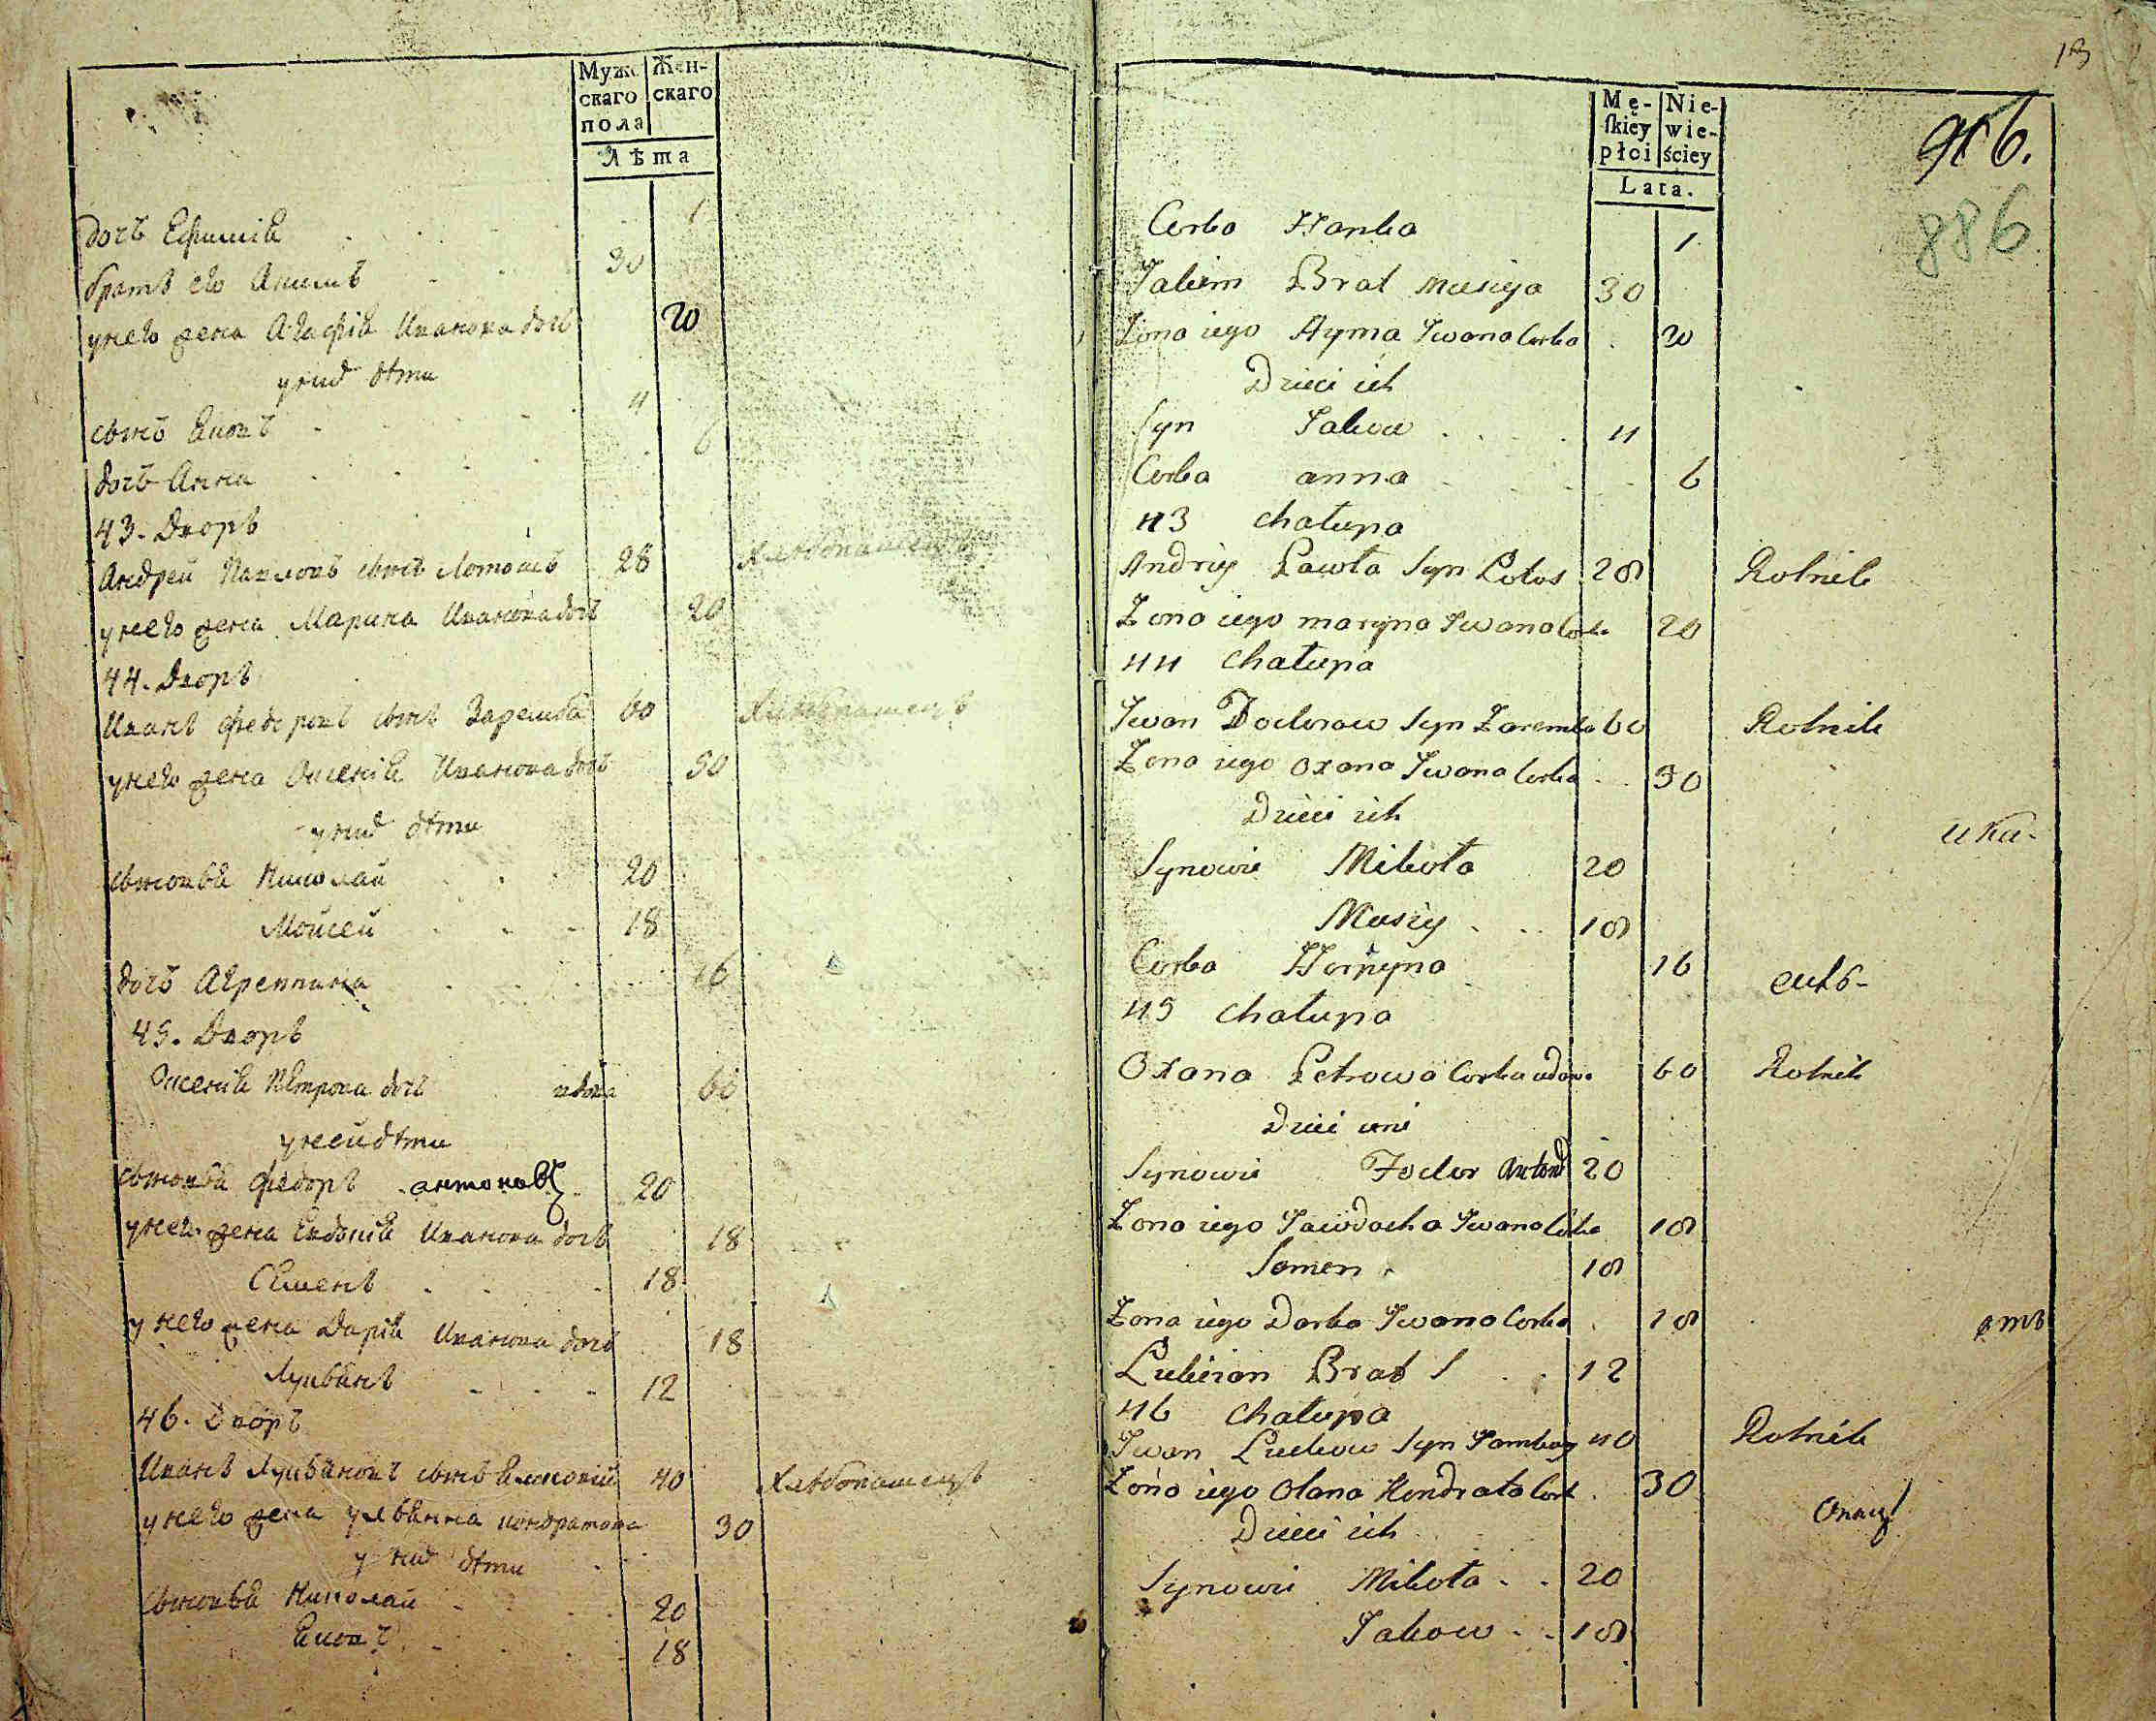 Муже
скаго
пола
Жен-
скаго
Лѣта
дочь Ефимія 1
братъ его Акимъ 30
у него жена Агафія Иванова дочь 20
у них дѣти
сынъ Яковъ 4
дочь Анна 6
43. Дворъ
Андрей Павловъ сынъ Лотошъ 28 Хлѣбопашецъ
у него жена Марина Иванова дочь 20
44. Дворъ
Иванъ Федоровъ сынъ Заремба 60 Хлѣбопашецъ
у него жена Оксенія Иванова дочь 50
у них дѣти
сыновья Николай 20
Мойсей 18
дочь Агреппина 16
45. Дворъ
Оксенія Петрова дочь вдова 60
у ней дѣти
сыновья Федоръ антоновъ 20
у него жена Евдокія Иванова дочь 18
Семенъ 18
у него жена Дарія Иванова дочь 18
Лукьянъ 12
46. Дворъ
Иванъ Лукьяновъ сынъ 40 Хлѣбопашецъ
у него жена Ульянна кондратова 30
у них дѣти
сыновья Николай 20
Яковъ 18
13
Mę-
ſkiey
płci
Nie-
wie-
ściey
Lata.
886
Corka Hanka 1
Jakim Brat Musieja 30
Żona iego Ayma Iwana Corka 20
Dzieci ich
Syn Jakow 4
Corka anna 6
43 chałupa
Andriy Pawła Syn Lotos 28 Rolnik
Żona iego maryna Iwana Corka 20
44 chałupa
Iwan Fiodorow Syn Zaremba 60 Rolnik
Żona iego oxana Iwana Corka 50
Dzieci ich
ика-
Synowie Mikoła 20
Musiy 18
Corka Horpyna 16
45 chałupa
Oxana Petrowa Corka wdowa 60 Rolnik
Dzieci iey
Synowie Fiodor Anton 20
Żona iego Jawdocha Iwana Corka 18
Semen 18
Żona iego Darka Iwana Corka 18
отъ
Lukian Brat 12
46 chałupa
Iwan Lukian Syn 40 Rolnik
Żona iego Olana Kondrata Cork 30
Dzieci ich
Synowie Mikoła 20
Jakow 18